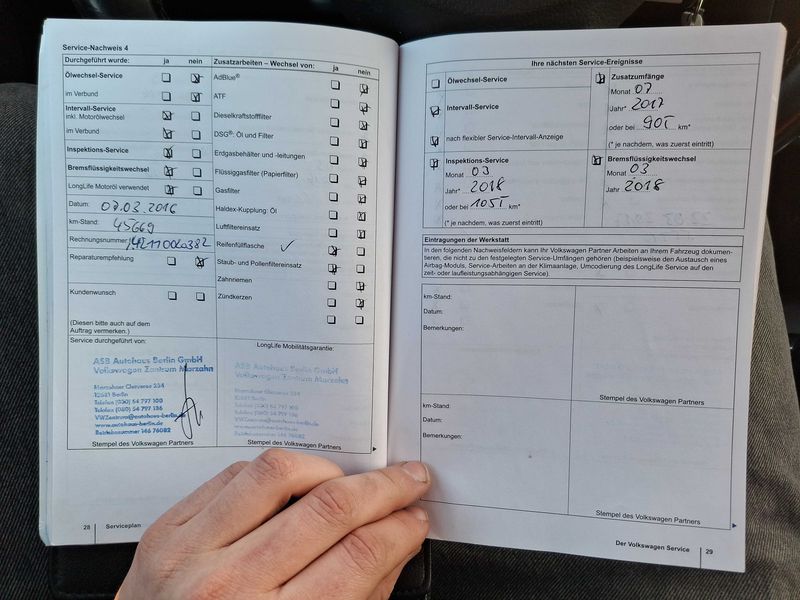 Service-Nachweis 4
Durchgeführt wurde: ja nein
Ölwechsel-Service
im Verbund
Intervall-Service
inkl. Motorölwechsel
im Verbund
Inspektions-Service
Bremsflüssigkeitswechsel
LongLife Motoröl verwendet
Datum: 07.03.2016
km-Stand: 45669
Rechnungsnummer:
Reparaturempfehlung
Kundenwunsch
(Diesen bitte auch auf dem
Auftrag vermerken.)
Service durchgeführt von:
ASB Autohaus Berlin GmbH
Volkswagen Zentrum Marzahn
Marzahner Chaussee 234
12681 Berlin
Telefon (030) 54 797 100
Telefax (030) 54 797 136
VWZentrum@autohaus-berlin.de
www.autohaus-berlin.de
Betriebsnummer 146 76082
Stempel des Volkswagen Partners
Zusatzarbeiten – Wechsel von: ja nein
AdBlue®
ATF
Dieselkraftstofffilter
DSG®: Öl und Filter
Erdgasbehälter und -leitungen
Flüssiggasfilter (Papierfilter)
Gasfilter
Haldex-Kupplung: Öl
Luftfiltereinsatz
Reifenfüllflasche ✓
Staub- und Pollenfiltereinsatz
Zahnriemen
Zündkerzen
LongLife Mobilitätsgarantie:
ASB Autohaus Berlin GmbH
Volkswagen Zentrum Marzahn
Marzahner Chaussee 234
12681 Berlin
Telefon (030) 54 797 100
Telefax (030) 54 797 136
VWZentrum@autohaus-berlin.de
www.autohaus-berlin.de
Betriebsnummer 146 76082
Stempel des Volkswagen Partners
28 Serviceplan
Ihre nächsten Service-Ereignisse
Ölwechsel-Service
Intervall-Service
nach flexibler Service-Intervall-Anzeige
Zusatzumfänge
Monat 07
Jahr* 2017
oder bei 90T km*
(* je nachdem, was zuerst eintritt)
Inspektions-Service
Monat 03
Jahr* 2018
oder bei 105T km*
(* je nachdem, was zuerst eintritt)
Bremsflüssigkeitswechsel
Monat 03
Jahr 2018
Eintragungen der Werkstatt
In den folgenden Nachweisfeldern kann Ihr Volkswagen Partner Arbeiten an Ihrem Fahrzeug dokumen-
tieren, die nicht zu den festgelegten Service-Umfängen gehören (beispielsweise den Austausch eines
Airbag-Moduls, Service-Arbeiten an der Klimaanlage, Umcodierung des LongLife Service auf den
zeit- oder laufleistungsabhängigen Service).
km-Stand:
Datum:
Bemerkungen:
Stempel des Volkswagen Partners
km-Stand:
Datum:
Bemerkungen:
Stempel des Volkswagen Partners
Der Volkswagen Service 29